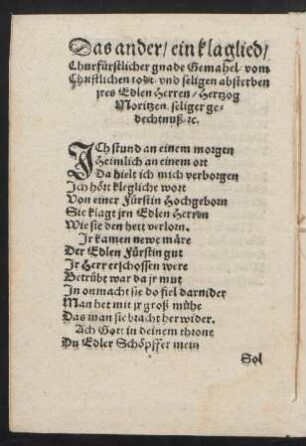 Das ander/ ein klaglied/
Churfürstlicher gnade Gemahel/ vom
Christlichen todt/ vnd seligen absterben
jres Edlen Herren/ Hertzog
Moritzen/ seliger ge-
dechtnuß/ ꝛc.
ICh stund an einem morgen
Heimlich an einem ort
Da hielt ich mich verborgen
Ich hört klegliche wort
Von einer Fürstin Hochgeborn
Sie klagt jrn Edlen Herren
Wie sie den hett verlorn.
Jr kamen newe märe
Der Edlen Fürstin gut
Jr Herr erschossen were
Betrübt war da jr mut
In onmacht sie do fiel darnider
Man het mit jr groß mühe
Das man sie bracht her wider.
Ach Gott in deinem throne
Du Edler Schöpffer mein
Sol